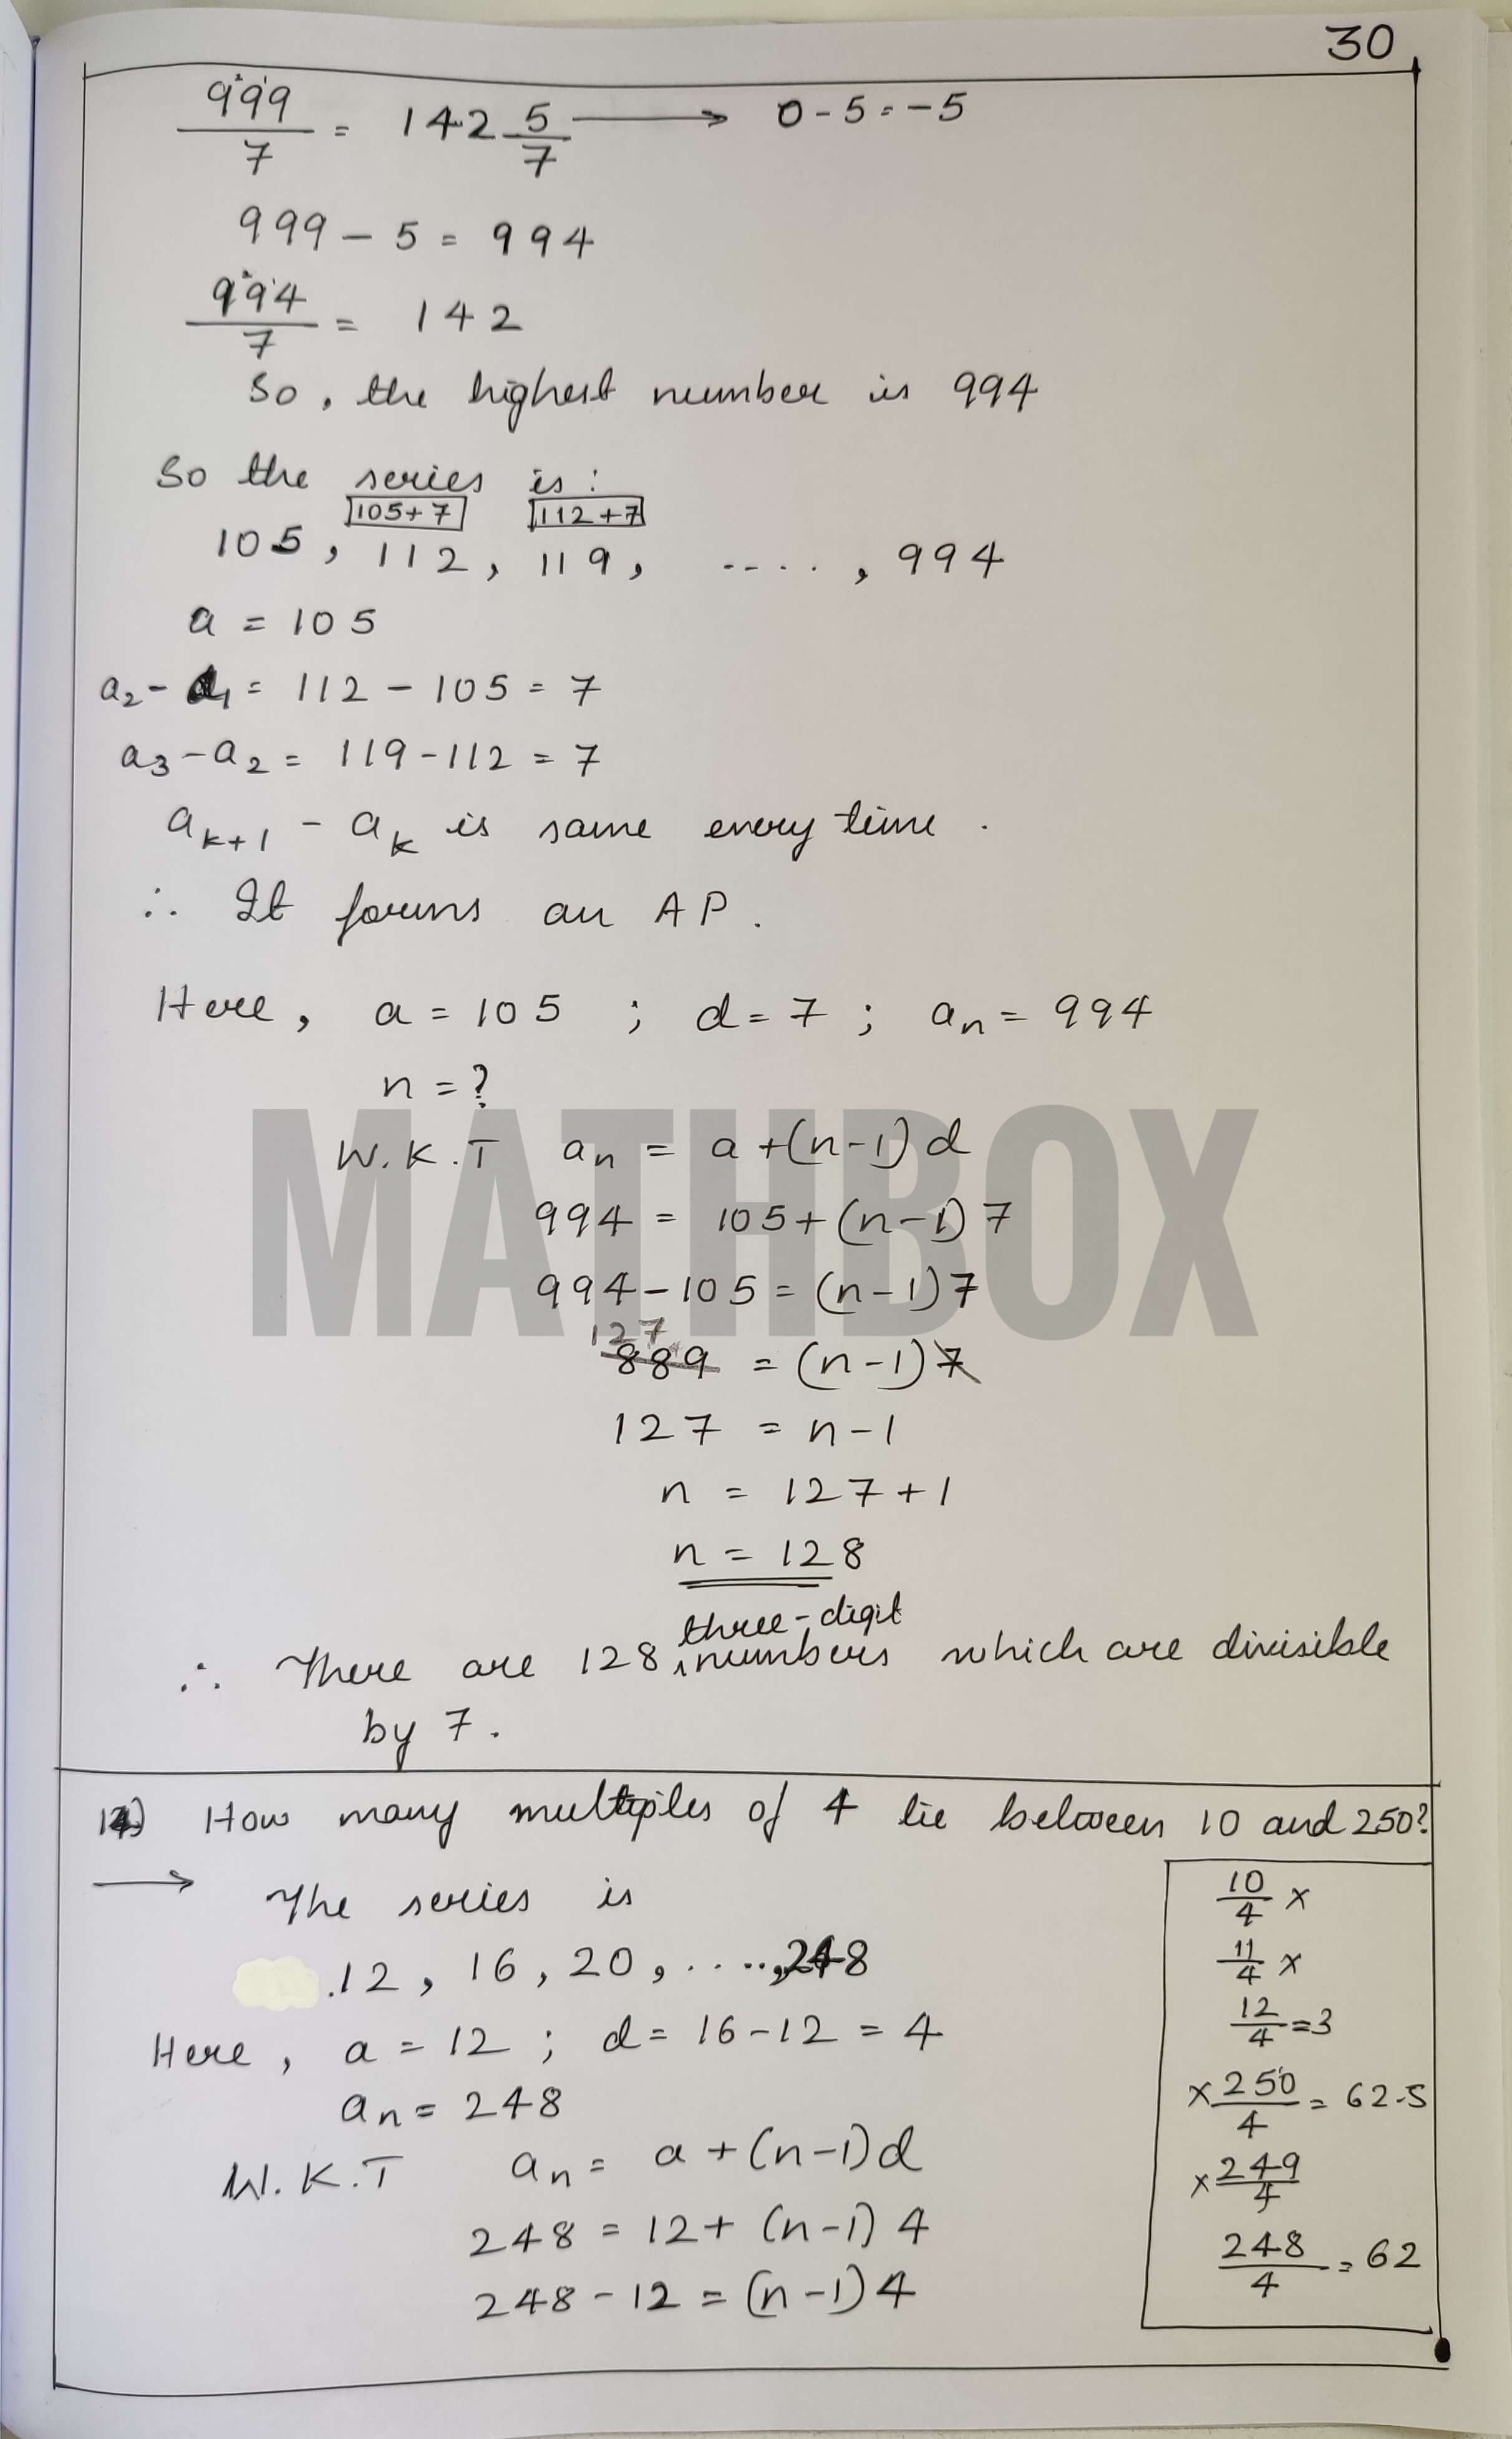 30
999/7 = 142 5/7 → 0-5=-5
999-5=994
994/7 = 142
So, the highest number is 994
So the series is:
105+7 112+7
105, 112, 119, ....., 994
a = 105
a2-a1 = 112-105=7
a3-a2= 119-112=7
ak+1 - ak is same every time.
∴ It forms an AP.
Here, a=105 ; d=7 ; an=994
n=?
W.K.T an = a+(n-1)d
994 = 105+(n-1)7
994-105=(n-1)7
127
889 = (n-1)7
127 = n-1
n = 127+1
n = 128
three-digit
∴ There are 128 numbers which are divisible
by 7.
MATHBOX
14) How many multiples of 4 lie between 10 and 250?
→ The series is
12, 16, 20, ...., 248
Here, a=12 ; d=16-12=4
an=248
W.K.T an = a+(n-1)d
248 = 12+(n-1)4
248-12=(n-1)4
10/4 ×
11/4 ×
12/4=3
×250/4=62.5
×249/4
248/4=62